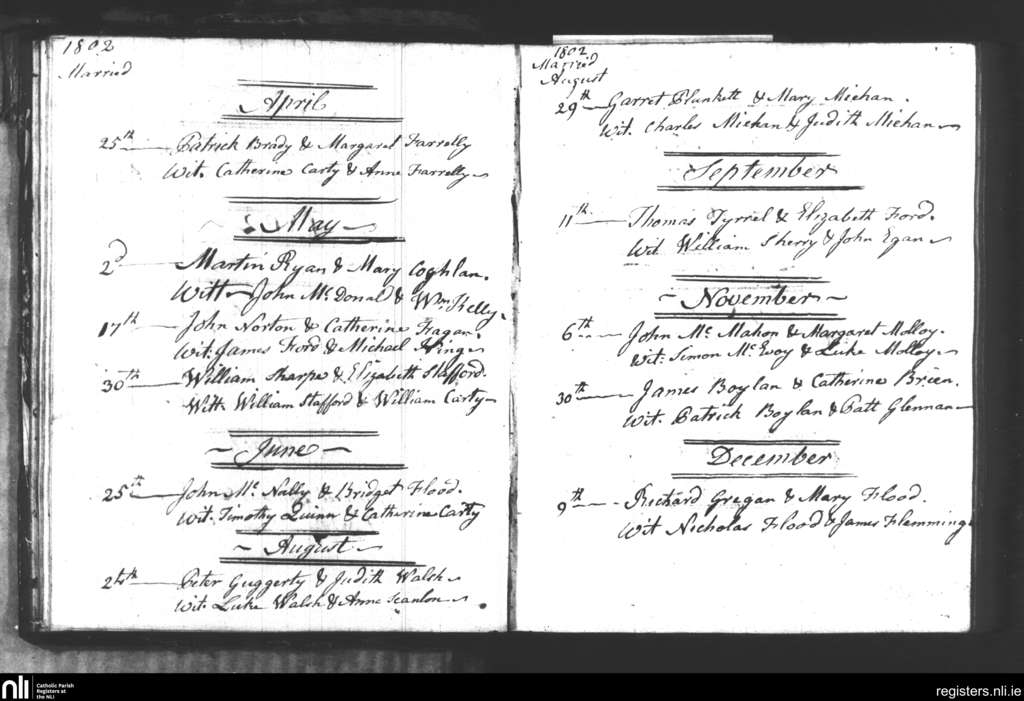 1802
Married
April
25th Patrick Brady & Margaret Farrelly
Wit. Catherine Carty & Anne Farrelly
May
2d Martin Ryan & Mary Coghlan.
Witt John Mc. Donald & Wm. Kelly.
17th John Norton & Catherine Fagan.
Wit. James Ford & Michael King
30th William Sharpe & Elizabeth Stafford.
Witt. William Stafford & William Carty
June
25th John Mc. Nally & Bridget Flood.
Wit. Timothy Quinn & Catherine Carty
August
24th Peter Guggerty & Judith Walsh
Wit. Luke Walsh & Anne Scanlon
1802
Married
August
29th Garret Plunkett & Mary Miehan.
Wit. Charles Miehan & Judith Miehan
September
11th Thomas Tyrrel & Elizabeth Ford.
Wit William Sherry & John Egan
November
6th John Mc. Mahon & Margaret Molloy.
Wit. Simon Mc. Evoy & Luke Molloy.
30th James Boylan & Catherine Brien.
Wit. Patrick Boylan & Patt Glennan
December
9th Richard Gregan & Mary Flood.
Wit Nicholas Flood & James Flemming
nli Catholic Parish
Registers at
the NLI
registers.nli.ie